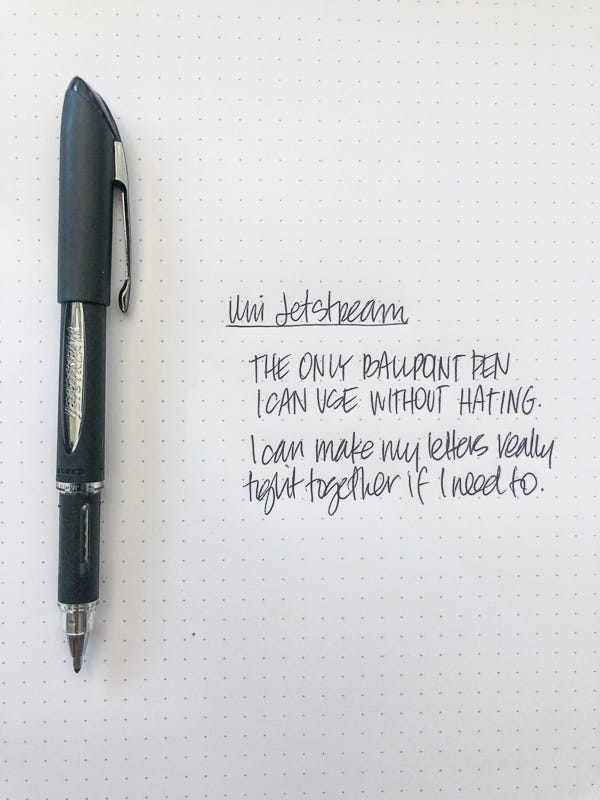 JETSTREAM
Uni Jetstream
THE ONLY BALLPOINT PEN
I CAN USE WITHOUT HATING.
I can make my letters really
tight together if I need to.